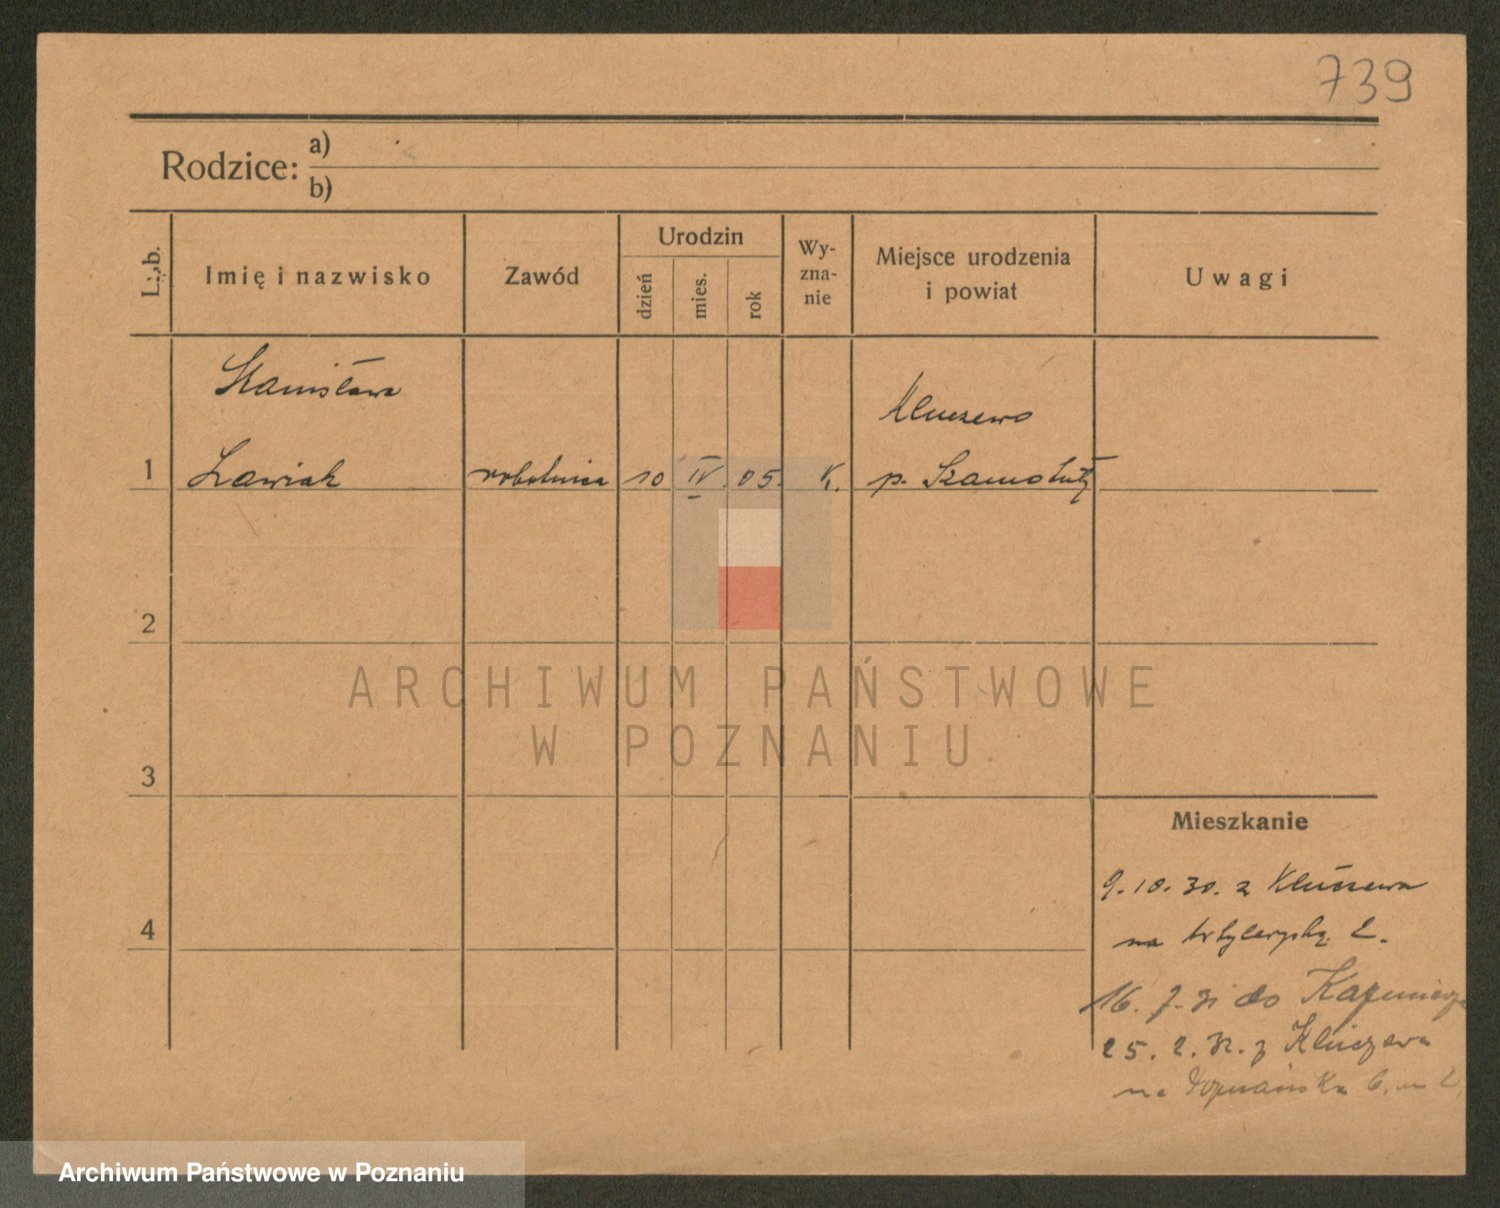 739
Rodzice: a)
b)
L. b. Imię i nazwisko Zawód Urodzin dzień mies. rok Wy-zna-nie Miejsce urodzenia i powiat Uwagi
Stanisława Kluczewo
1 Ławiak robotnica 10 IV. 05. k. p. Szamotuły
2
ARCHIWUM PAŃSTWOWE
W POZNANIU
3
Mieszkanie
9.10.30. z Kluczewa
4
na Artyleryską 2.
16. 7. 31 do Kaźmierza
25. 2. 32. z Kluczewa
na Poznańska 6. m 2
Archiwum Państwowe w Poznaniu